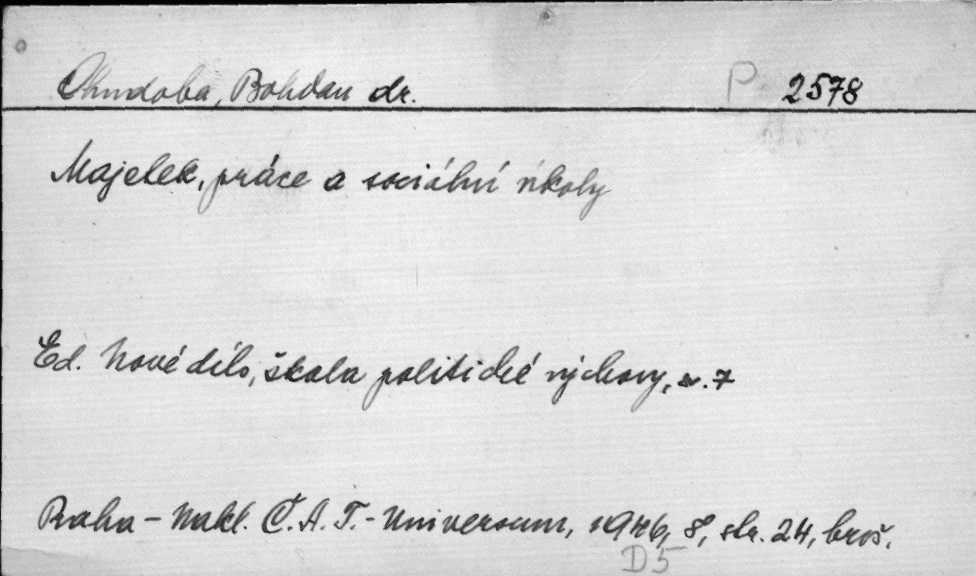 Chudoba, Bohdan dr. P 2578
Majetek, práce a sociální úkoly
Ed. Nové dílo, škola politické výchovy, sv. 7
Praha - Nakl. Č.A.T.- Universum, 1946, 8°, str. 24, brož.
D5